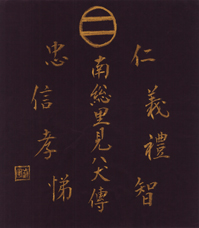 仁義禮智
南総里見八犬傳
忠信孝悌